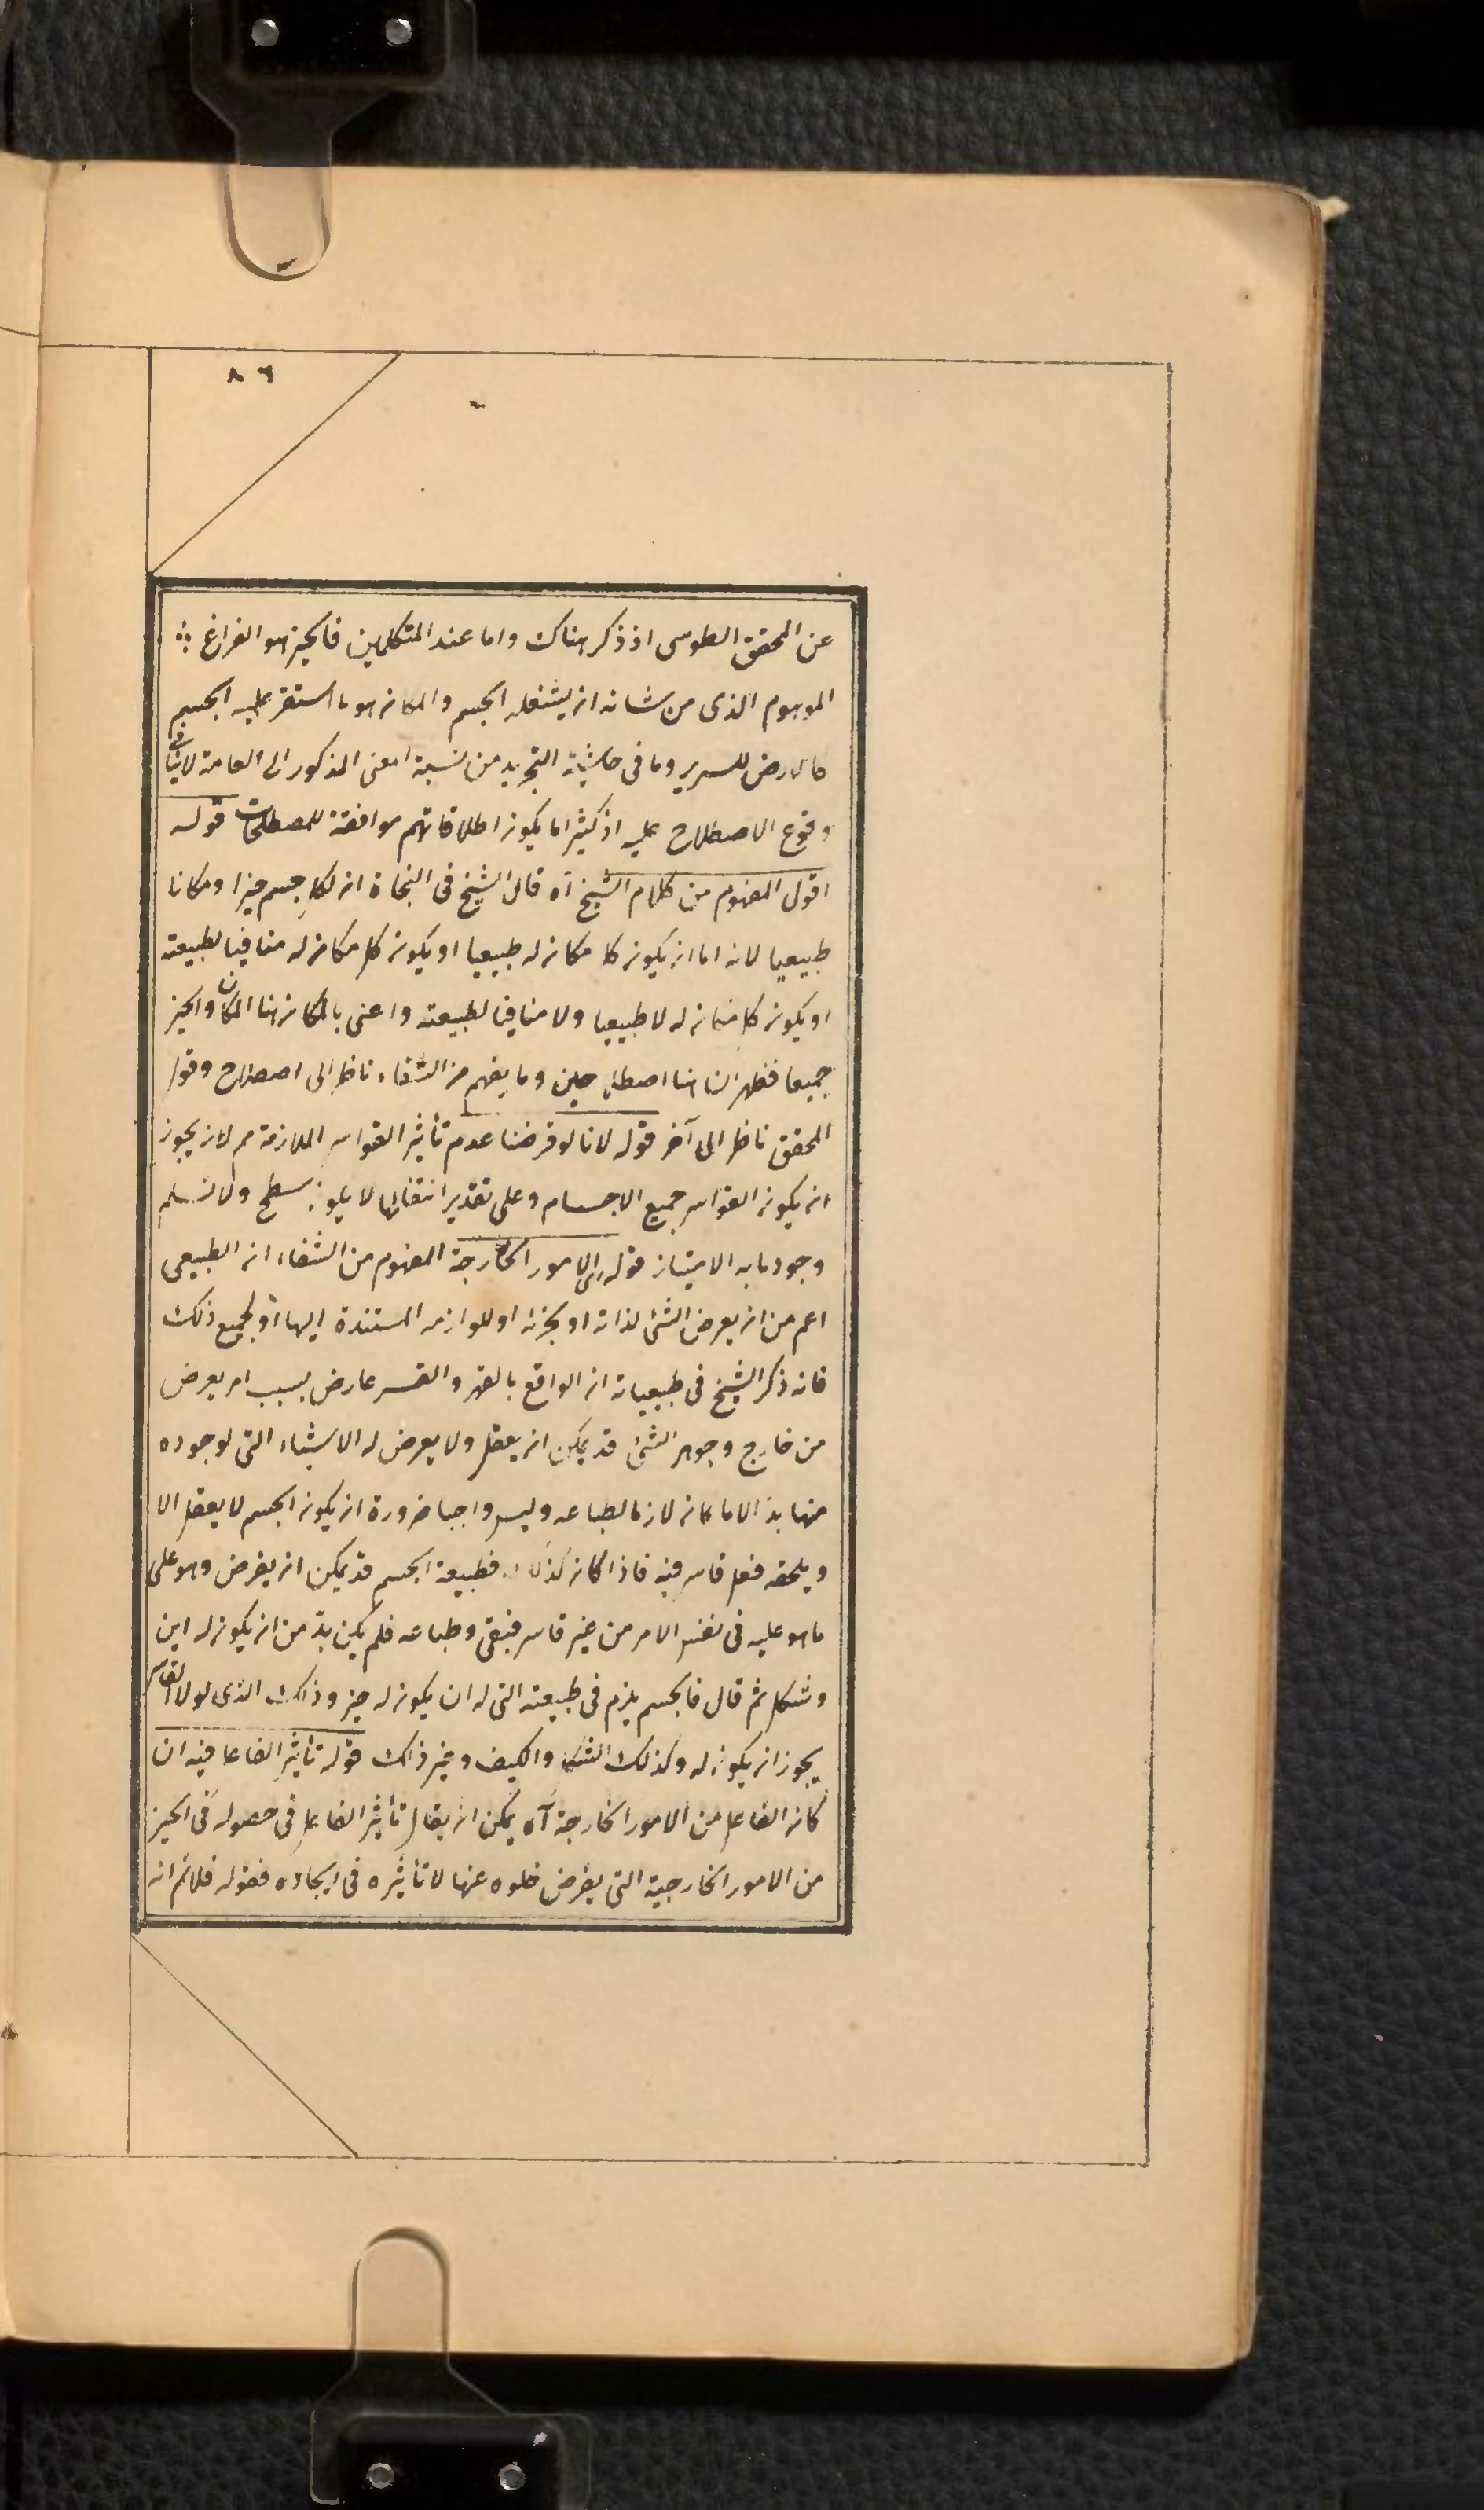 ٨٦
عن المحقق الطوسى اذ ذكر هناك واما عند المتكلمين فالحيز هو الفراغ
الموهوم الذى من شانه ان يشغله الجسم والمكان هو ما استقر عليه الجسم
كالارض للسرير وما فى حاشية التجريد من نسبة المعنى المذكور الى العامة لاينافى
وقوع الاصطلاح عليه اذ كثيرا ما يكون اطلاقاتهم موافقة للمصطلحات قوله
اقول المفهوم من كلام الشيخ آه قال الشيخ فى النجاة ان لكل جسم حيزا ومكانا
طبيعيا لانه اما ان يكون كل مكان له طبيعيا او يكون كل مكان له منافيا لطبيعته
او يكون كل مكان له لا طبيعيا ولا منافيا لطبيعته واعنى بالمكان هنا المكان والحيز
جميعا فظهر ان هنا اصطلاحين وما يفهم من الشفاء ناظر الى اصطلاح وقول
المحقق ناظر الى آخر قوله لانا لو فرضنا عدم تأثير القواسر الملازمة مم لان يجوز
ان يكون القواسر جميع الاجسام وعلى تقدير انتفائها لا يكون سطح ولا نسلم
وجود ما به الامتياز قوله اى الامور الخارجة المفهوم من الشفاء ان الطبيعى
اعم من ان يعرض الشئ لذاته او بجزئه او للوازمه المستندة اليها او لجميع ذلك
فانه ذكر الشيخ فى طبيعياته ان الواقع بالقهر والقسر عارض بسبب امر يعرض
من خارج وجوهر الشئ قد يمكن ان يعقل ولا يعرض له الاشياء التى لوجوده
منها بد الا ما كان لازما لطباعه وليس واجبا ضرورة ان يكون الجسم لا يعقل الا
ويلحقه فعل قاسر فيه فاذا كان كذلك فطبيعة الجسم قد يمكن ان يفرض وهو على
ما هو عليه فى نفس الامر من غير قاسر فبقى وطباعه فلم يكن بد من ان يكون له اين
وشكل ثم قال فالجسم يلزم فى طبيعته التى له ان يكون له حيز وذلك الذى لولا القاسر
يجوز ان يكون له وكذلك الشكل والكيف وغير ذلك قوله تأثير الفاعل فيه ان
كان الفاعل من الامور الخارجة آه يمكن ان يقال تأثير الفاعل فى حصوله فى الحيز
من الامور الخارجية التى يفرض خلوه عنها لا تأثيره فى ايجاده فقوله فلانم انه